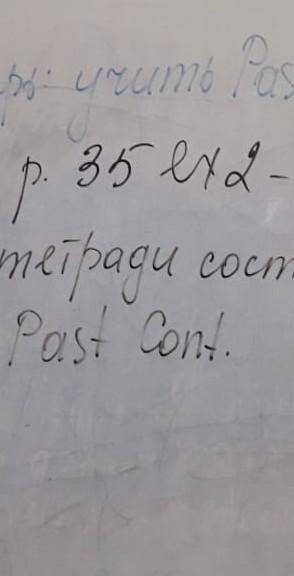 рь: учить Pas
p. 35 ex 2 -
тетради сост
Past Cont.